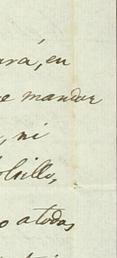 ará, en
e mandar
, ni
olsillo,
o a todas